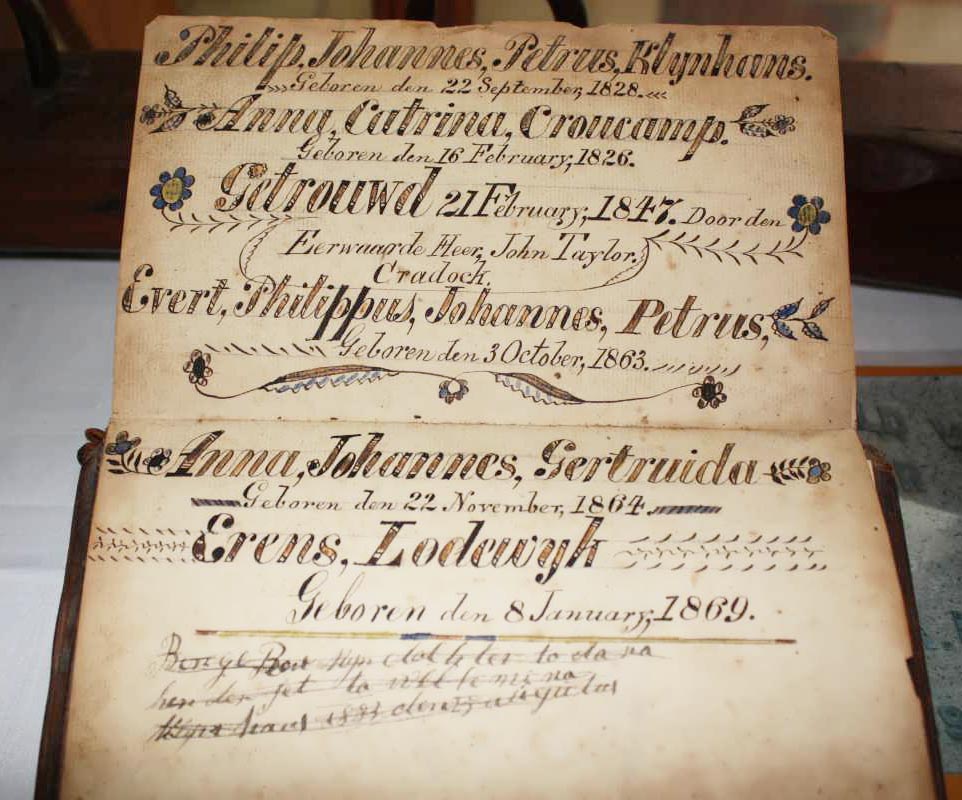 Philip, Johannes, Petrus, Klynhans.
Geboren den 22 September, 1828.
Anna, Catrina, Croucamp.
Geboren den 16 February, 1826.
Getrouwd 21 February, 1847. Door den
Eerwaarde Heer, John Taylor.
Cradock.
Evert, Philippus, Johannes, Petrus,
Geboren den 3 October, 1863.
Anna, Johannes, Gertruida
Geboren den 22 November, 1864.
Erens, Lodewyk
Geboren den 8 January, 1869.
to da na